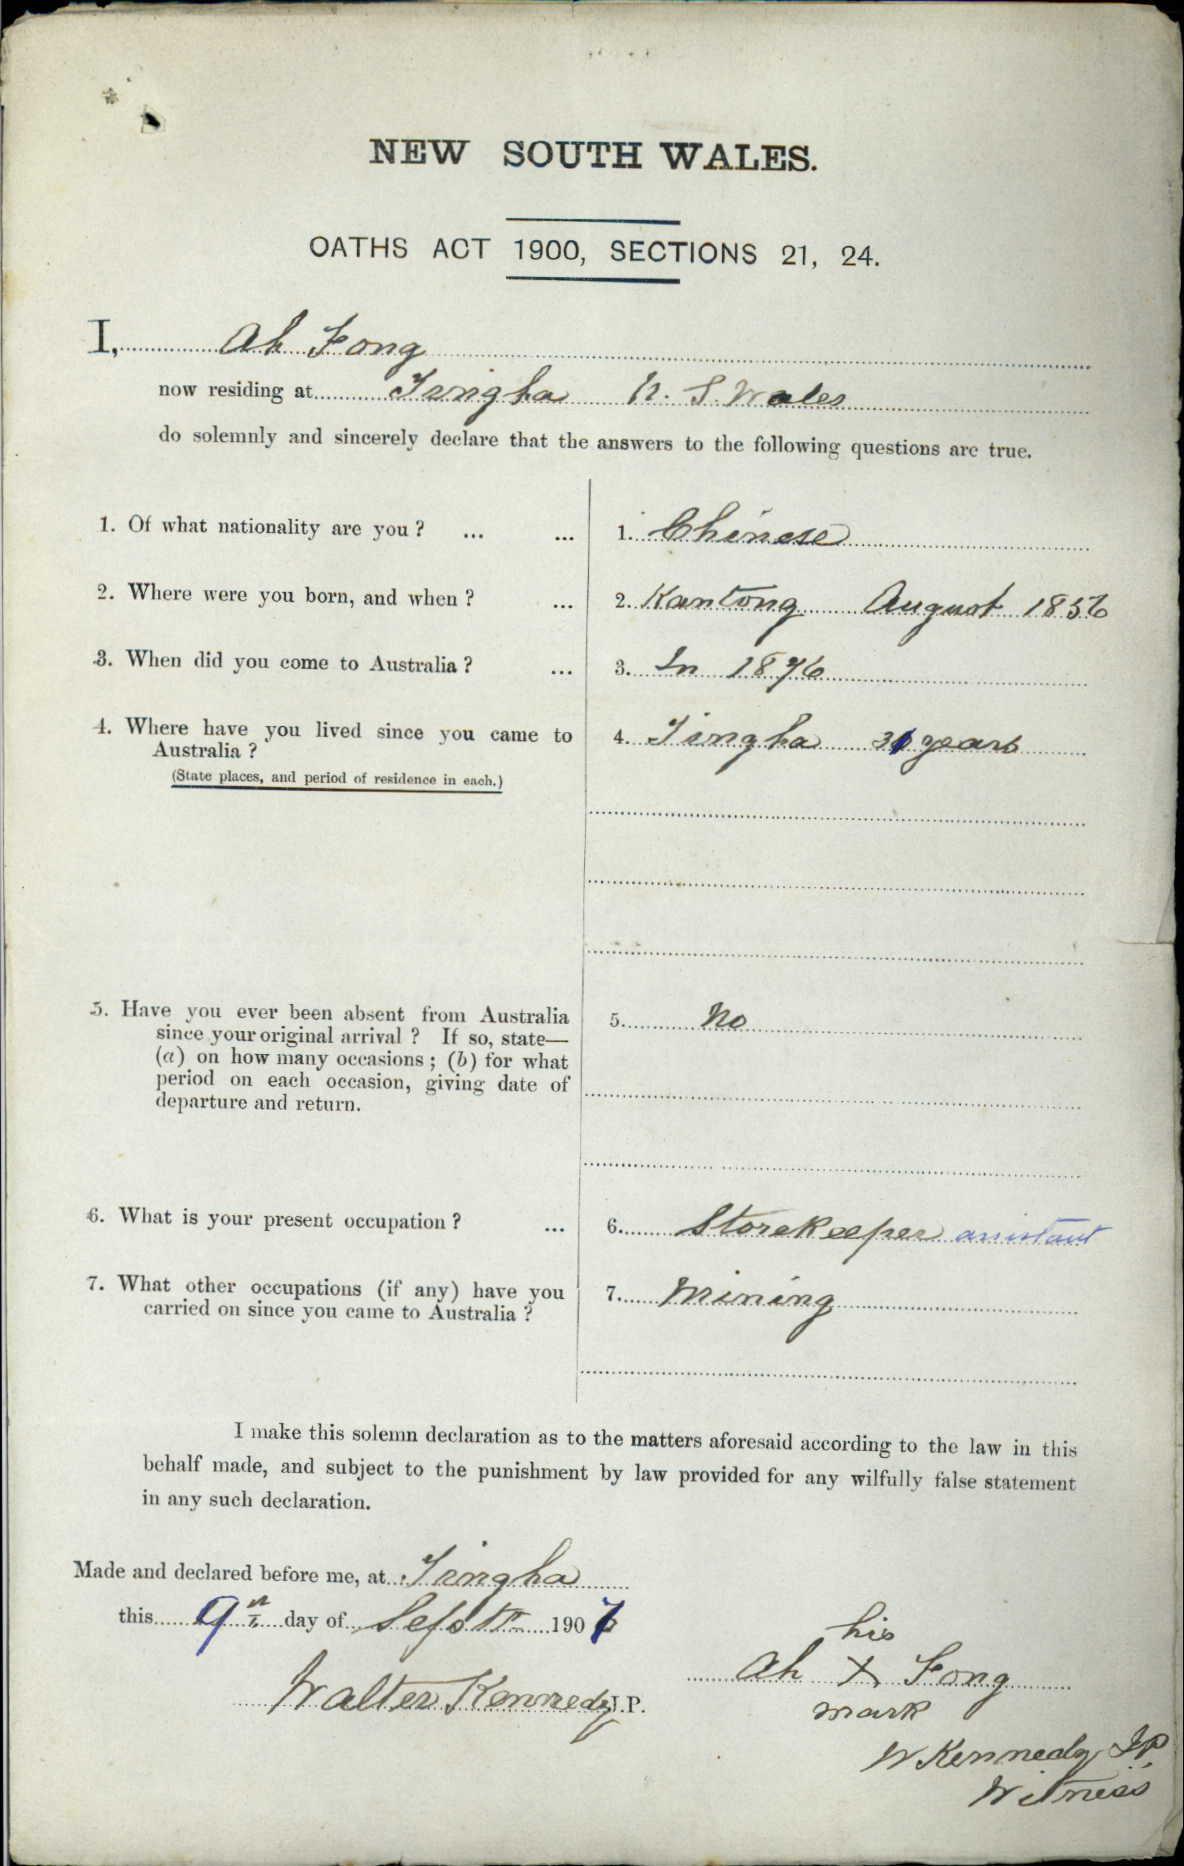 NEW SOUTH WALES.
OATHS ACT 1900, SECTIONS 21, 24.
I, Ah Fong
now residing at Tingha N. S. Wales
do solemnly and sincerely declare that the answers to the following questions are true.
1. Of what nationality are you? ... ... 1. Chinese
2. Where were you born, and when? ... 2. Kantong August 1856
3. When did you come to Australia? ... 3. In 1876
4. Where have you lived since you came to 4. Tingha 31 years
Australia?
(State places, and period of residence in each.)
5. Have you ever been absent from Australia 5. No
since your original arrival? If so, state—
(a) on how many occasions; (b) for what
period on each occasion, giving date of
departure and return.
6. What is your present occupation? ... 6. Storekeeper assistant
7. What other occupations (if any) have you 7. Mining
carried on since you came to Australia?
I make this solemn declaration as to the matters aforesaid according to the law in this
behalf made, and subject to the punishment by law provided for any wilfully false statement
in any such declaration.
Made and declared before me, at Tingha
this 9th day of Septr 1907
his
Ah X Fong
mark
Walter Kennedy J.P.
W Kennedy J.P.
Witness